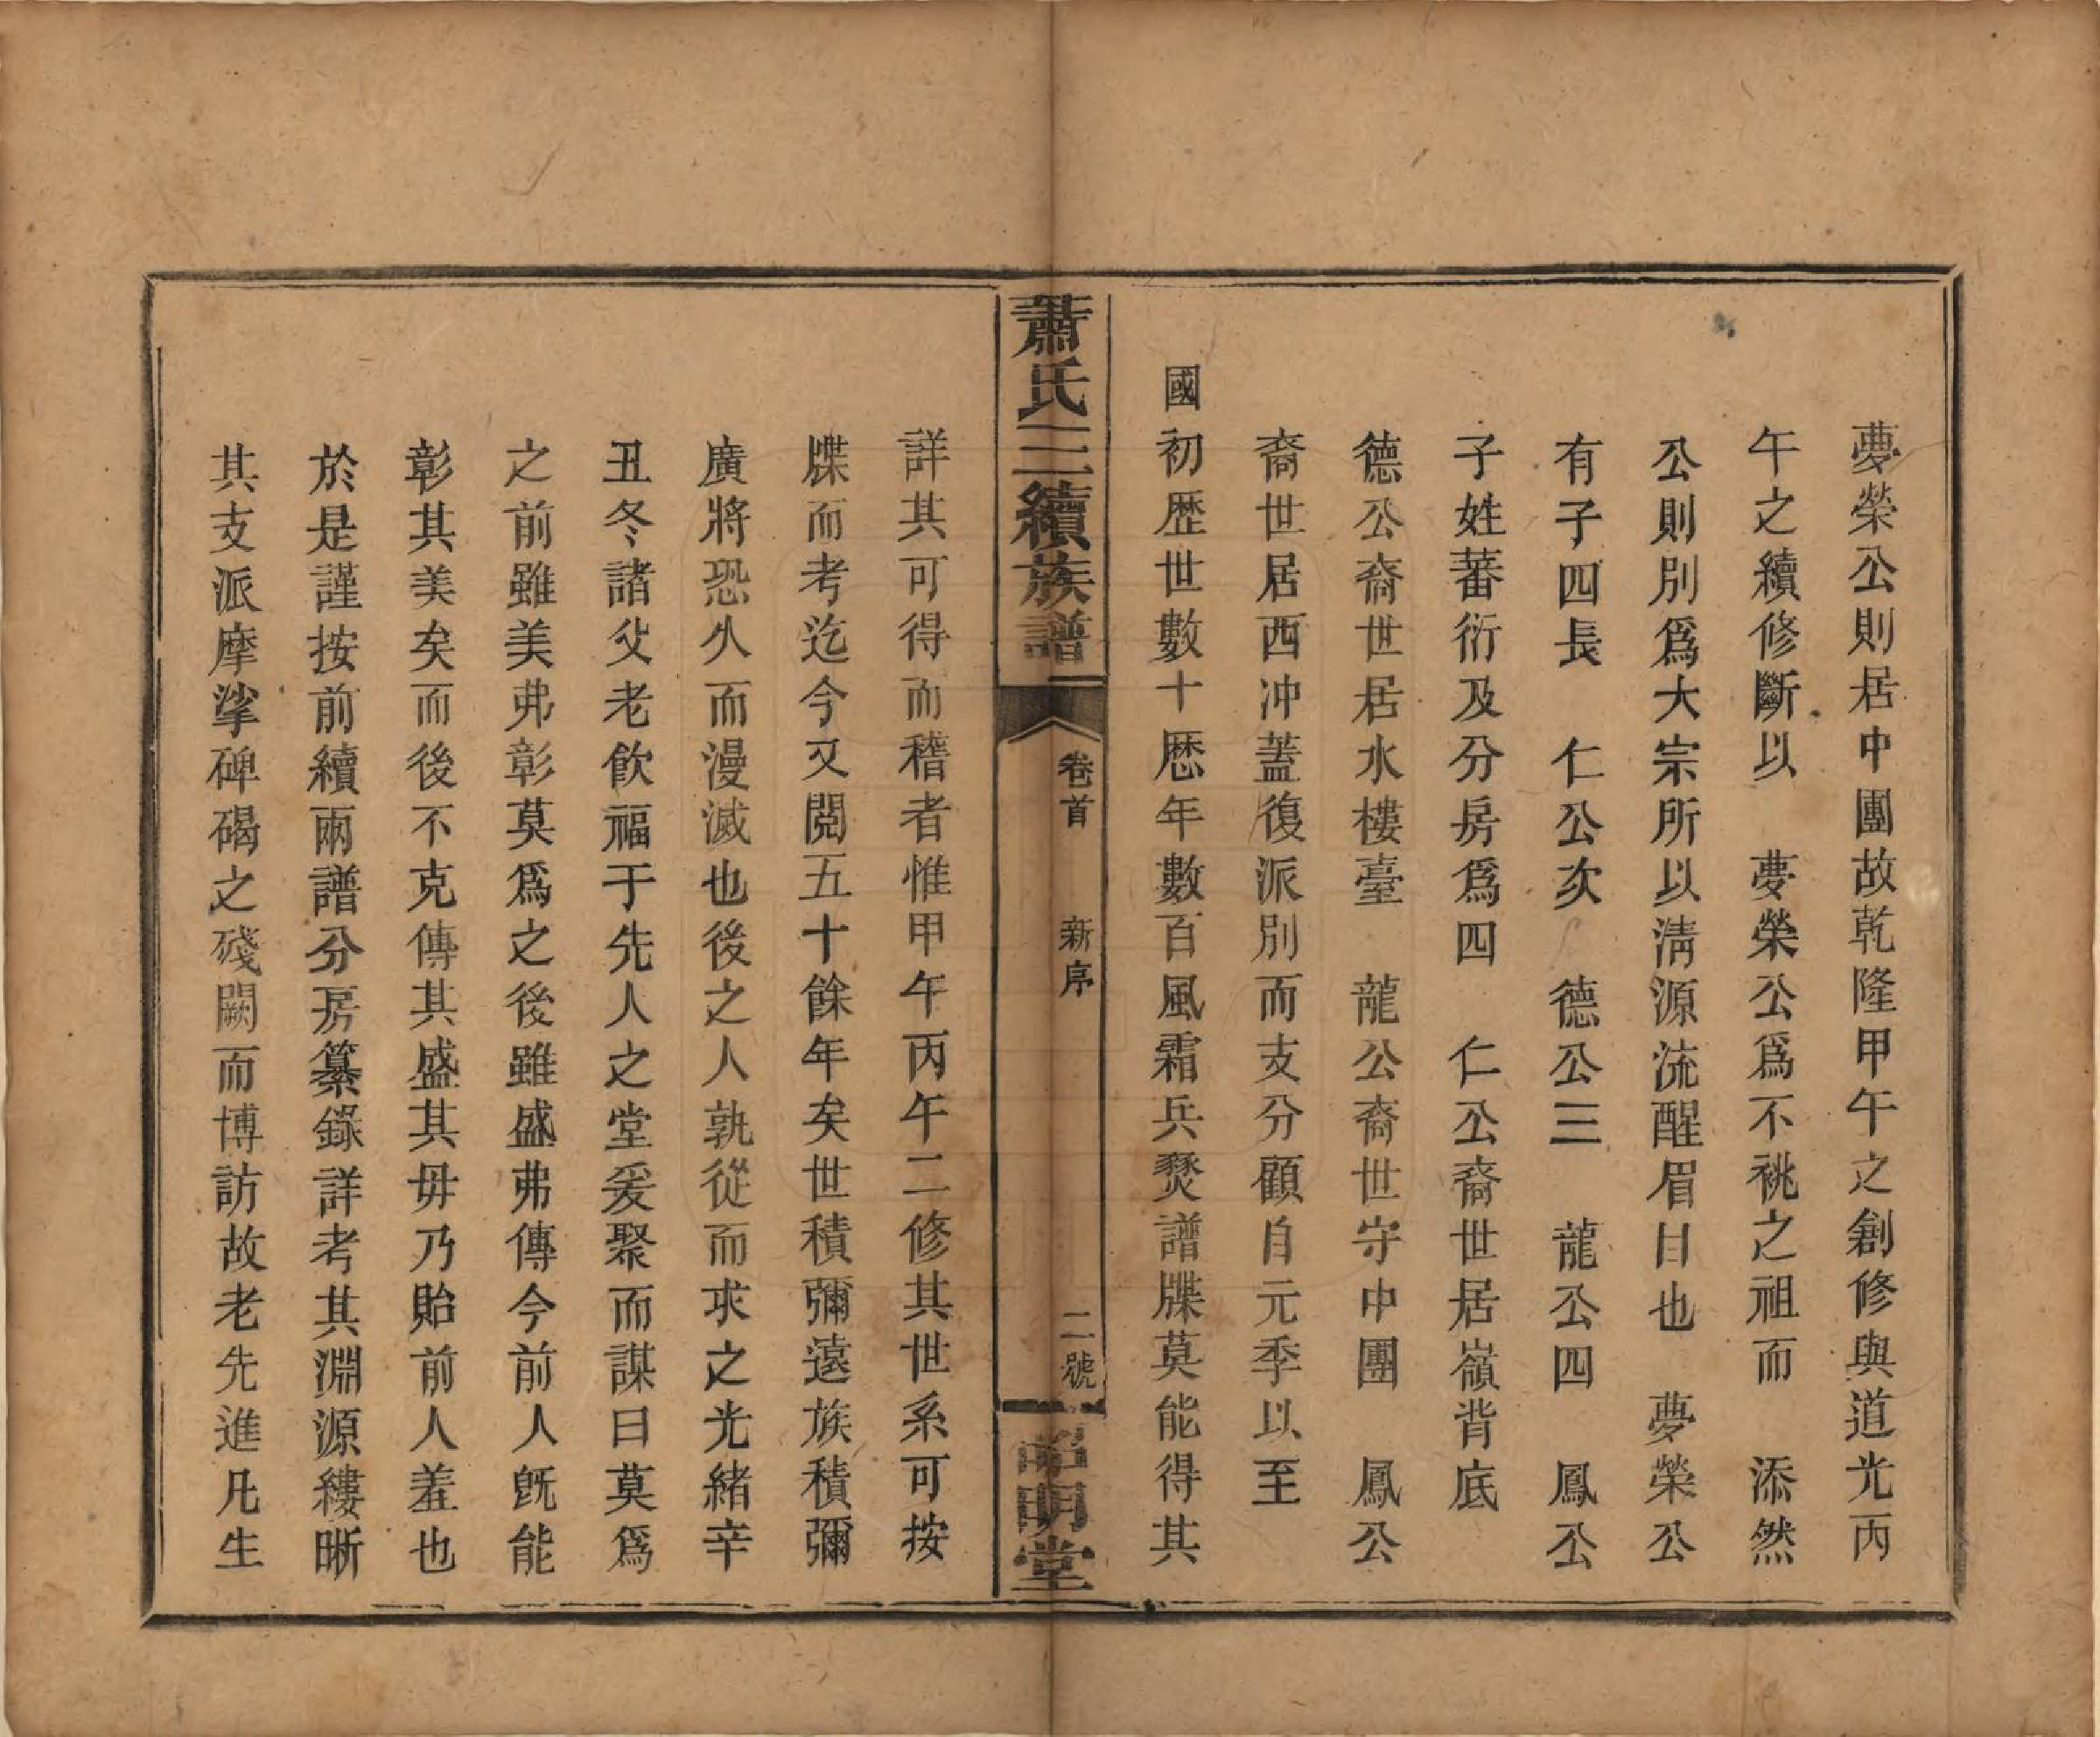 夢榮公則居中團故乾隆甲午之創修與道光丙
午之續修斷以　夢榮公爲不祧之祖而　添然
公則別爲大宗所以淸源流醒眉目也　夢榮公
有子四長　仁公次　德公三　龍公四　鳳公
子姓蕃衍及分房爲四　仁公裔世居嶺背底
德公裔世居水樓臺　龍公裔世守中團　鳳公
裔世居西冲蓋復派別而支分顧自元季以至
國初歷世數十歷年數百風霜兵燹譜牒莫能得其
蕭氏三續族譜
卷首　新序
二號
明堂
詳其可得而稽者惟甲午丙午二修其世系可按
牒而考迄今又閱五十餘年矣世積彌遠族積彌
廣將恐久而漫滅也後之人孰從而求之光緒辛
丑冬諸父老飲福于先人之堂爰聚而謀曰莫爲
之前雖美弗彰莫爲之後雖盛弗傳今前人旣能
彰其美矣而後不克傳其盛其毋乃貽前人羞也
於是謹按前續兩譜分房纂錄詳考其淵源縷晰
其支派摩挲碑碣之殘闕而博訪故老先進凡生